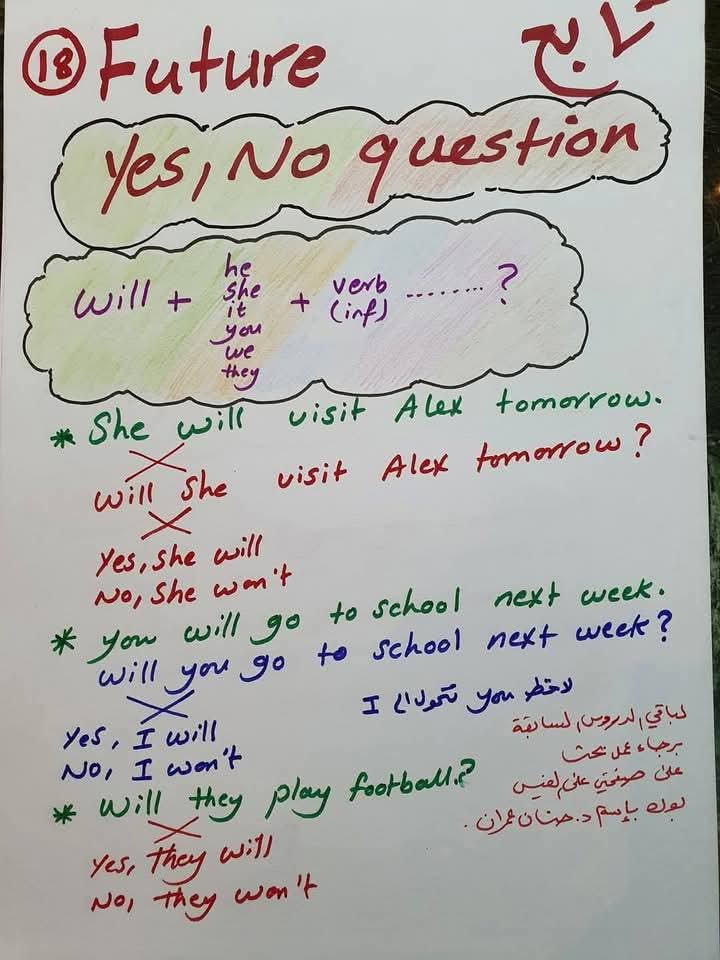 18 Future
تابع
Yes, No question
will + he she it you we they + verb (inf) ........ ?
* She will visit Alex tomorrow.
will she visit Alex tomorrow?
Yes, she will
No, she won't
* you will go to school next week.
will you go to school next week?
لاحظ you تتحول إلى I
Yes, I will
No, I won't
لباقي الدروس السابقة
برجاء عمل بحث
على صفحتي على الفيس
بوك بإسم د. حنان عمران.
* Will they play football.?
Yes, they will
No, they won't